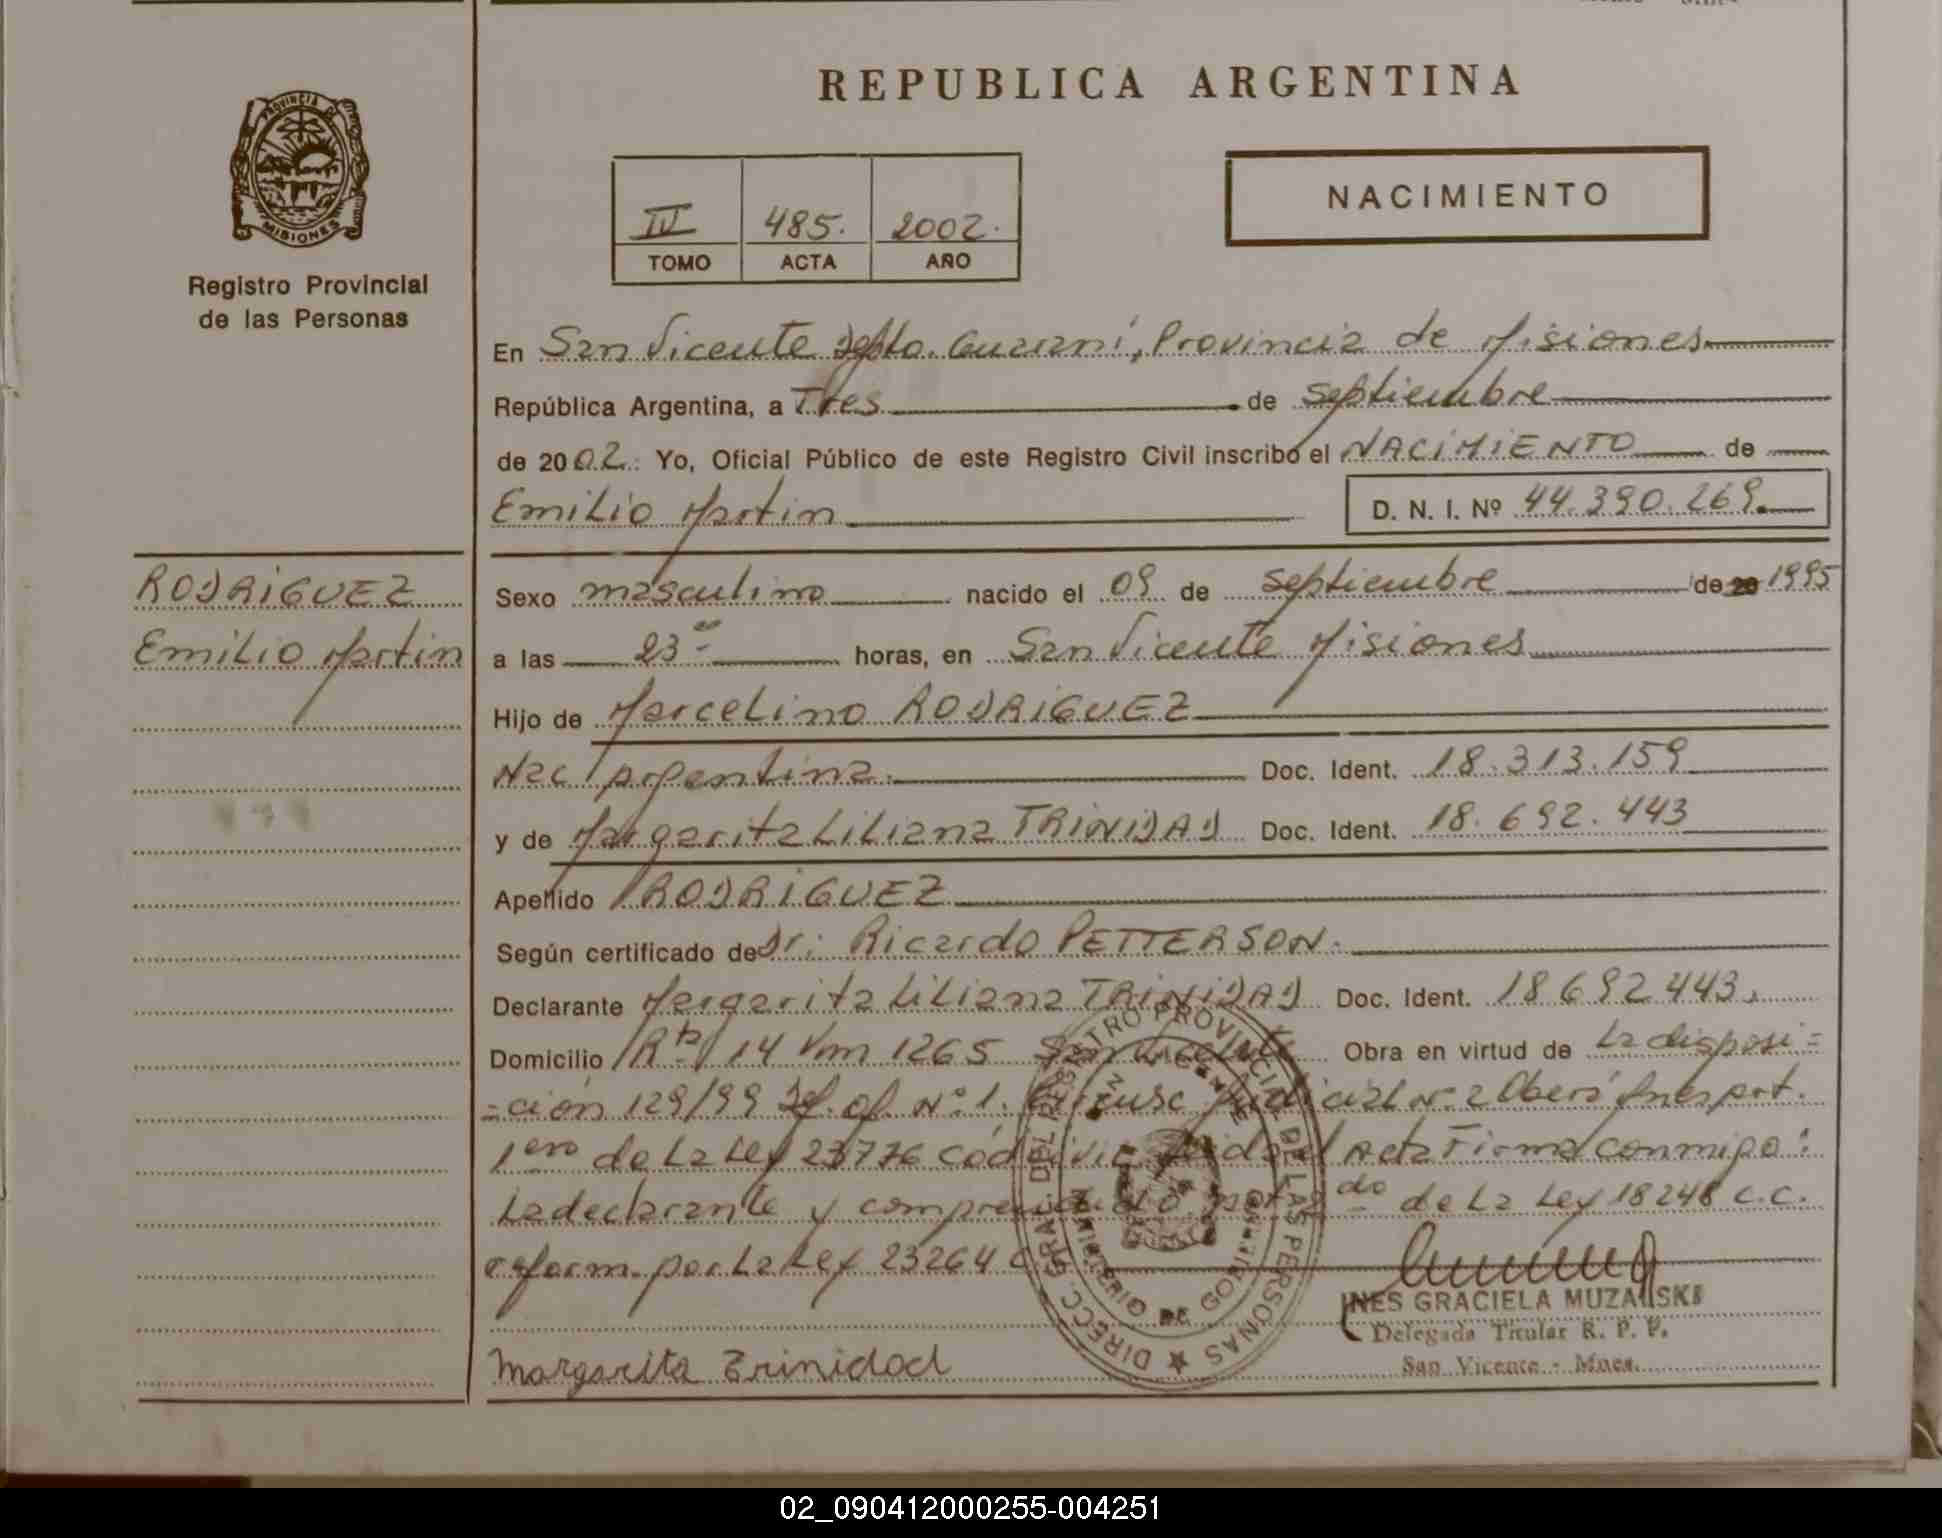 REPUBLICA ARGENTINA
PROVINCIA DE
MISIONES
Registro Provincial
de las Personas
NACIMIENTO
IV 485. 2002.
TOMO ACTA AÑO
En San Vicente Depto. Guaraní, Provincia de Misiones
República Argentina, a Tres de septiembre
de 2002. Yo, Oficial Público de este Registro Civil inscribo el NACIMIENTO de
Emilio Martin D. N. I. Nº 44.390.269.
RODRIGUEZ
Emilio Martin
Sexo masculino nacido el 09 de septiembre de 20 1995
a las 23 horas, en San Vicente Misiones
Hijo de Marcelino RODRIGUEZ
Nac Argentina. Doc. Ident. 18.313.159
y de Margarita Liliana TRINIDAD Doc. Ident. 18.692.443
Apellido RODRIGUEZ
Según certificado de Dr: Ricardo PETTERSON.
Declarante Margarita Liliana TRINIDAD Doc. Ident. 18692443.
Domicilio Rta 14 Km 1265 San Vicente Obra en virtud de La disposi=
=ción 129/99 Def. of. Nº 1. Judicial Nº 2 Oberá
1ero de La Ley 23776 Acta Firma conmigo:
La declarante y de La Ley 18248 C.C.
reform. por La Ley 23264
DIRECC. GRAL. DEL REGISTRO PROVINCIAL DE LAS PERSONAS
MINISTERIO DE GOBIERNO
INES GRACIELA MUZALSKI
Delegada Titular R. P. P.
San Vicente - Mnes.
Margarita Trinidad
02_090412000255-004251